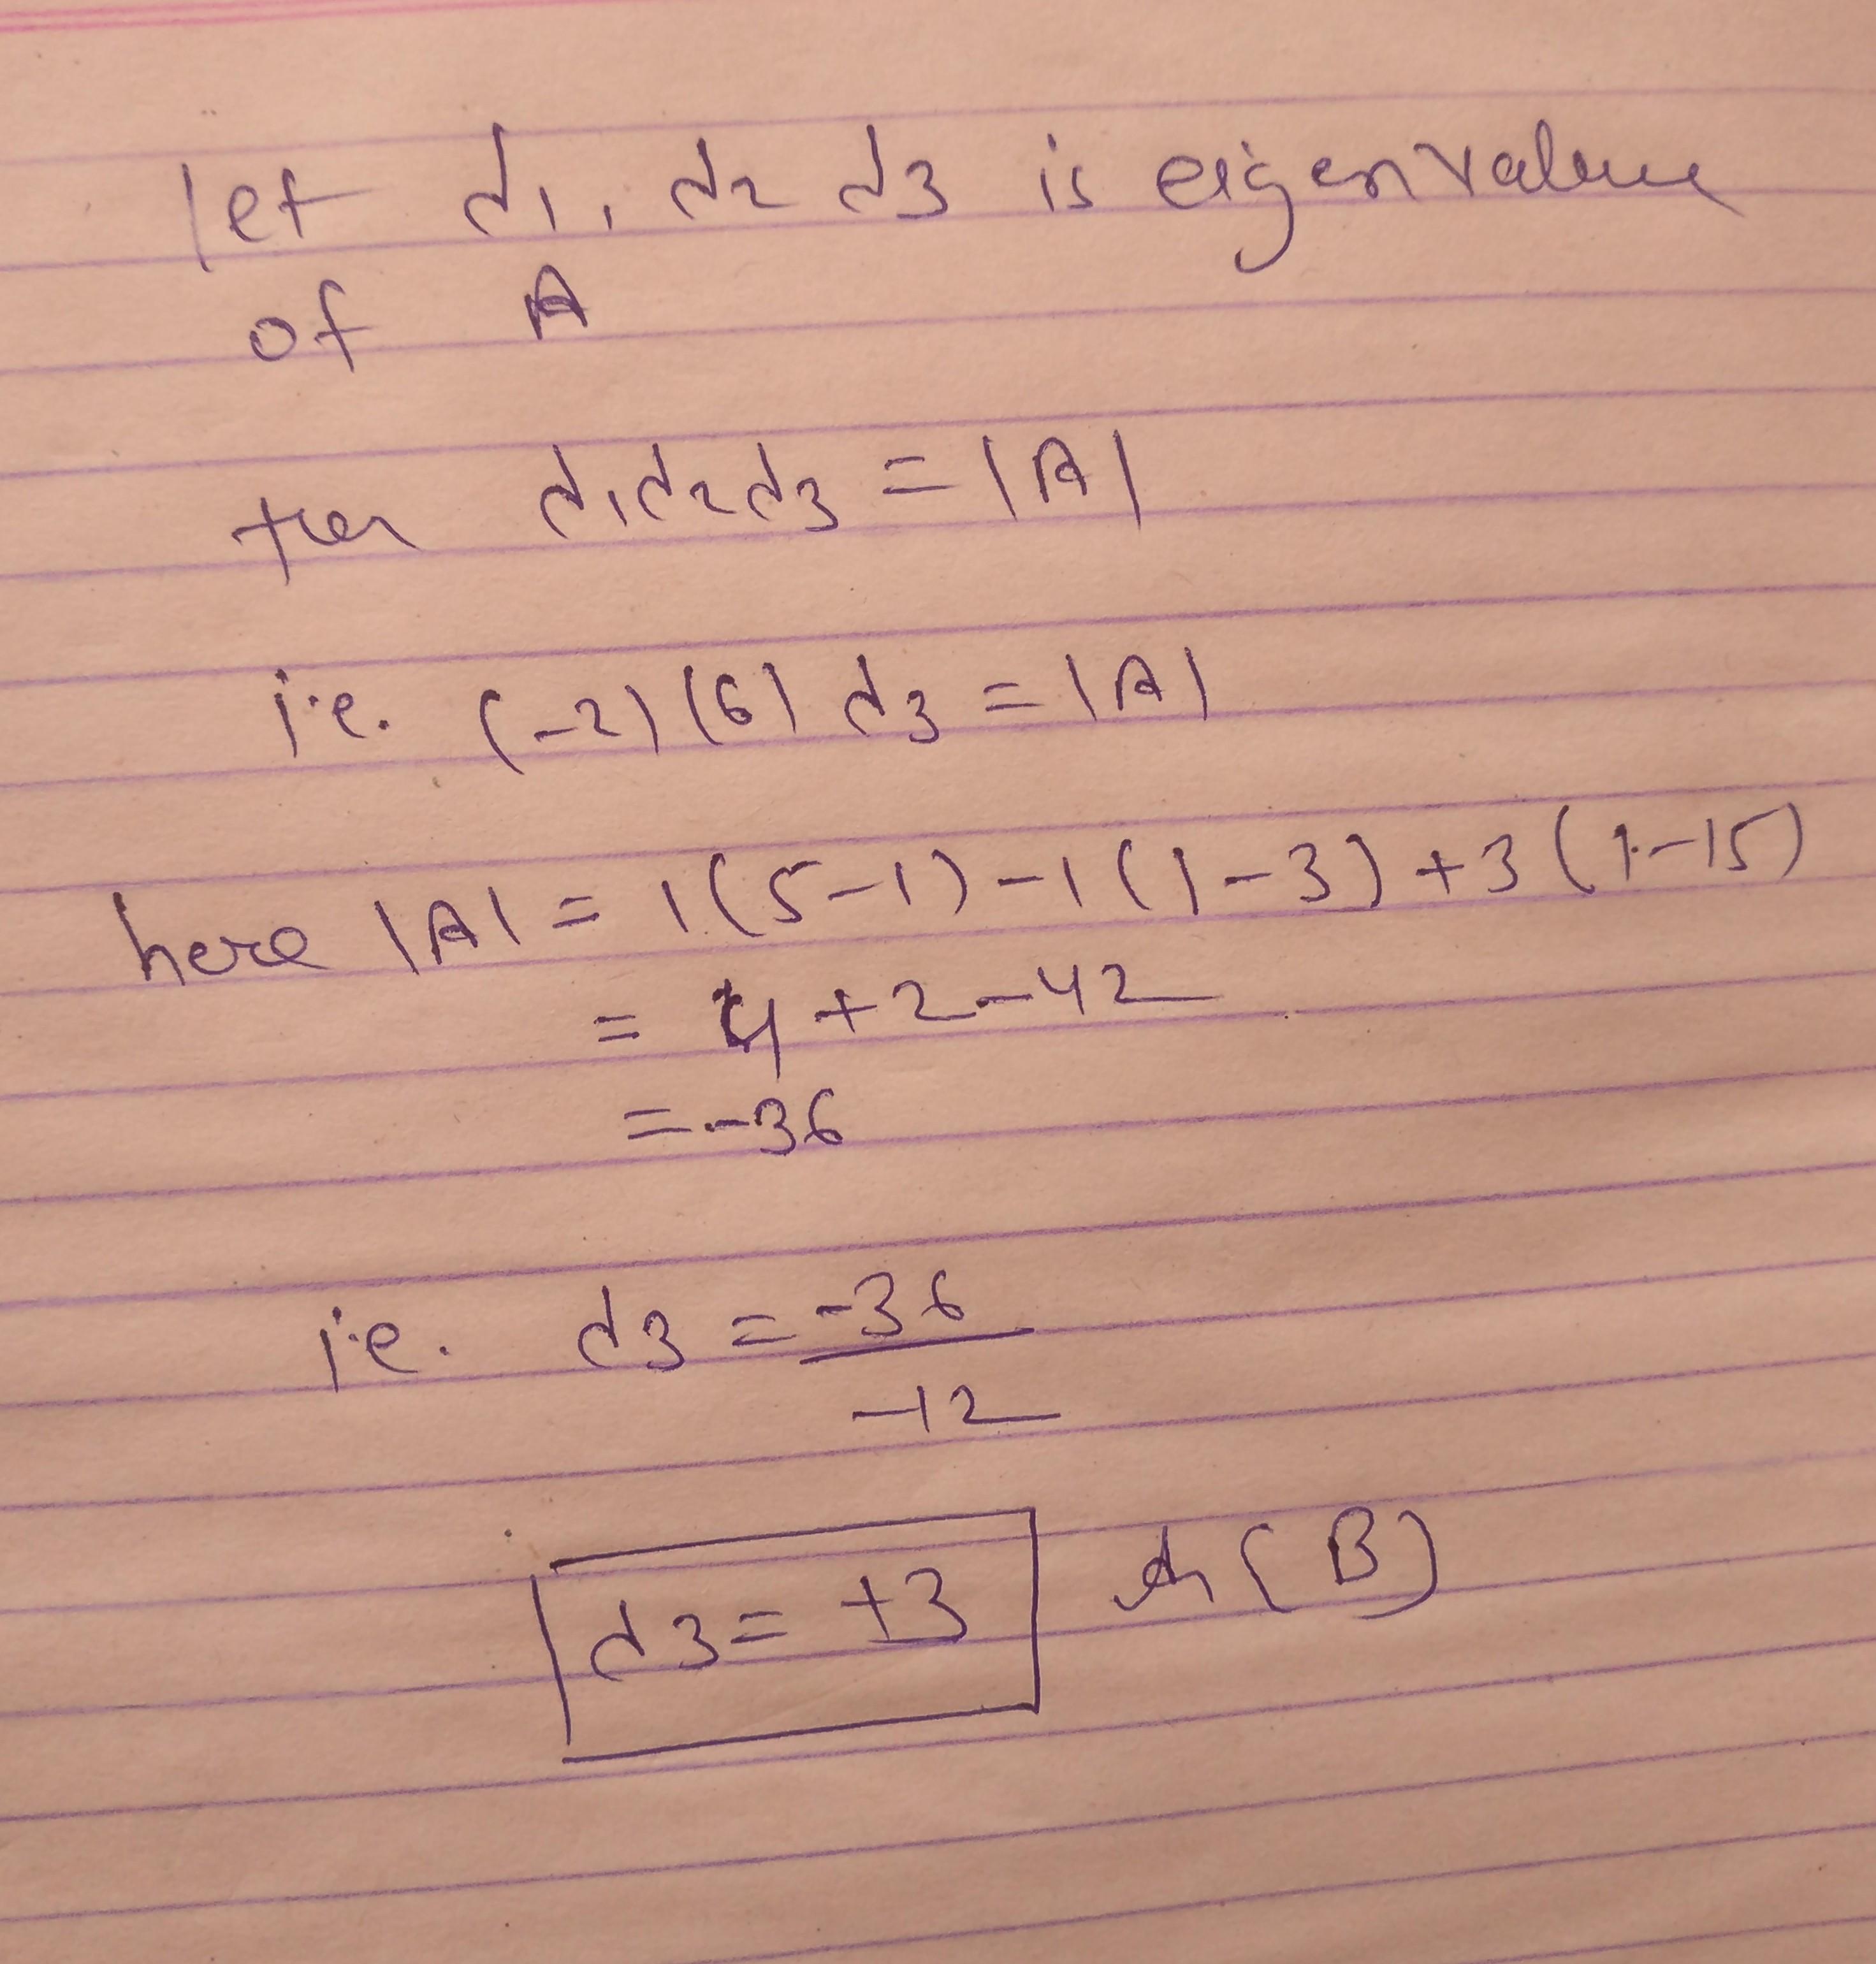 let λ1, λ2 λ3 is eigenvalue
of A
then λ1λ2λ3 = |A|
i.e. (-2)(6) λ3 = |A|
here |A| = 1(5-1)-1(1-3)+3(1-15)
= 4+2-42
= -36
i.e. λ3 = -36
-12
λ3 = +3 (B)